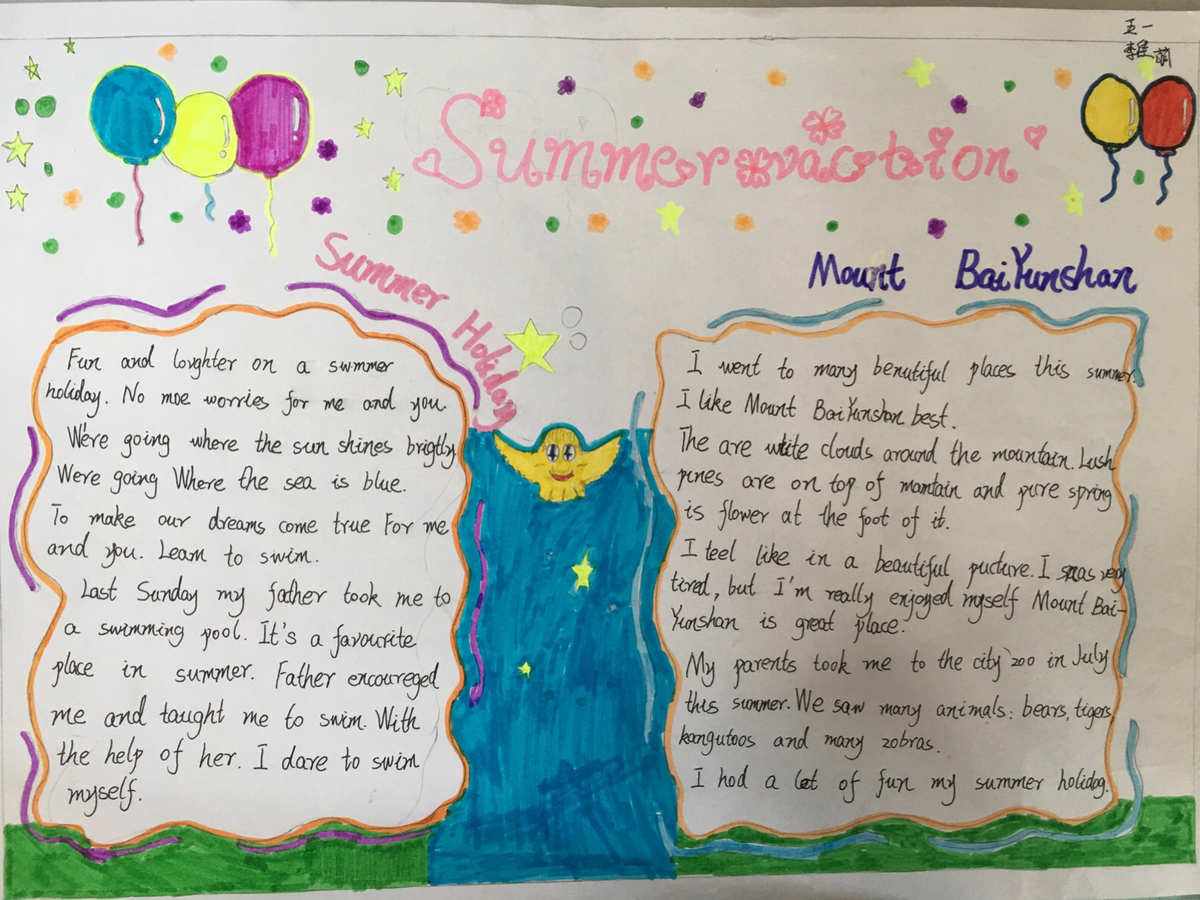 五一
李萌
Summer vaction
Summer Holiday
Fun and loughter on a swmmer
holiday. No moe worries for me and you.
We're going where the sun shines brigtly
We're going Where the sea is blue.
To make our dreams come true For me
and you. Learn to swim.
Last Sunday my father took me to
a swimming pool. It's a favourite
place in summer. Father encoureged
me and taught me to swim. With
the help of her. I dare to swim
myself.
Mount BaiYunshan
I went to many benutiful places this summer.
I like Mount BaiYunshan best.
The are white clouds around the mountain. Lush
pines are on top of mantain and pure spring
is flower at the foot of it.
I teel like in a beautiful pucture. I was very
tired, but I'm really enjoyed myself Mount Bai-
Yunshan is great place.
My parents took me to the city zoo in July
this summer. We saw many animals: bears, tigers,
kangutoos and many zobras.
I had a lot of fun my summer holidag.